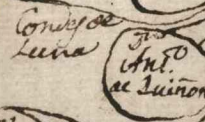 Condes de
Luna
Dn
Antº
de Quiñon